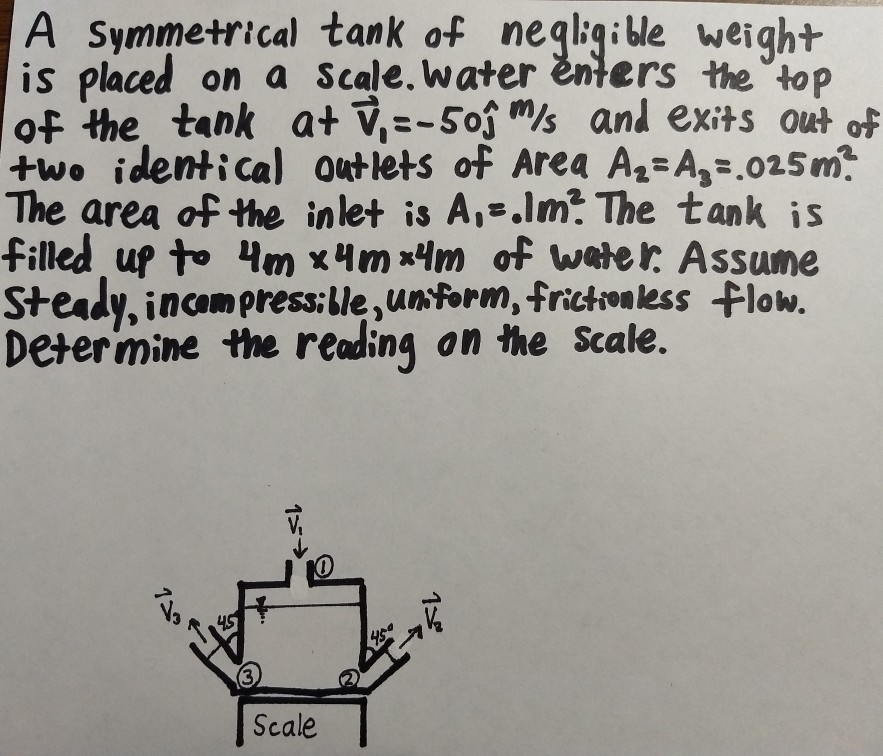 A symmetrical tank of negligible weight
is placed on a scale. Water enters the top
of the tank at V⃗₁=-50ĵ m/s and exits out of
two identical outlets of Area A₂=A₃=.025m².
The area of the inlet is A₁=.1m². The tank is
filled up to 4m x4m x4m of water. Assume
Steady, incompressible, uniform, frictionless flow.
Determine the reading on the scale.
V⃗₁
①
V⃗₃
45°
45°
V⃗₂
③
②
Scale